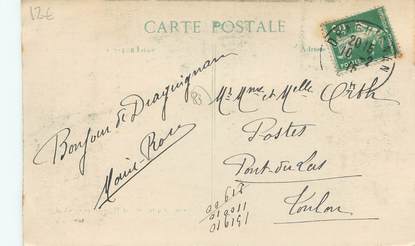 12€
CARTE POSTALE
Bonjour de Draguignan
Marie-Rose
Mr Mme et Melle Orth
Postes
Pont-du-Las
Toulon